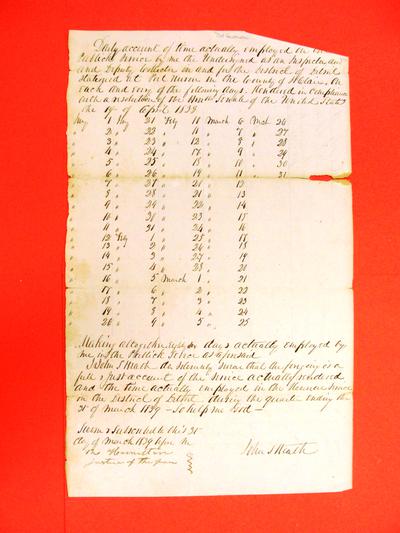 Daily account of time actually employed on the
Publick Service by me the Undersigned as an Inspector and
and Deputy Collector in and for the District of Detroit
stationed at Port Huron in the County of St Clair, on
each and every of the following days. Rendered in compliance
with a resolution of the Honble Senate of the United States
the 19th of April 1838
1 21 Feby 10 March 6 Mch 26
2 22 11 7 27
3 23 12 8 28
4 24 17 9 29
5 25 18 10 30
6 26 19 11 31
7 27 21 12
8 28 21 13
9 29 22 14
10 30 23 15
11 31 24 16
12 Feby 1 25 17
13 2 26 18
14 3 27 19
15 4 28 20
16 5 March 1 21
17 6 2 22
18 7 3 23
19 8 4 24
20 9 5 25
Making altogether days actually employed by
me in the Publick Service as aforesaid
I John S Heath do solemnly swear that the foregoing is a
full & just account of the service actually rendered
and the time actually employed in the Revenue Service
in the District of Detroit during the quarter ending the
31 of March 1839 — So help me God —
Sworn & Subscribed to this 31
day of March 1839 before me
Justice of the peace
John S Heath